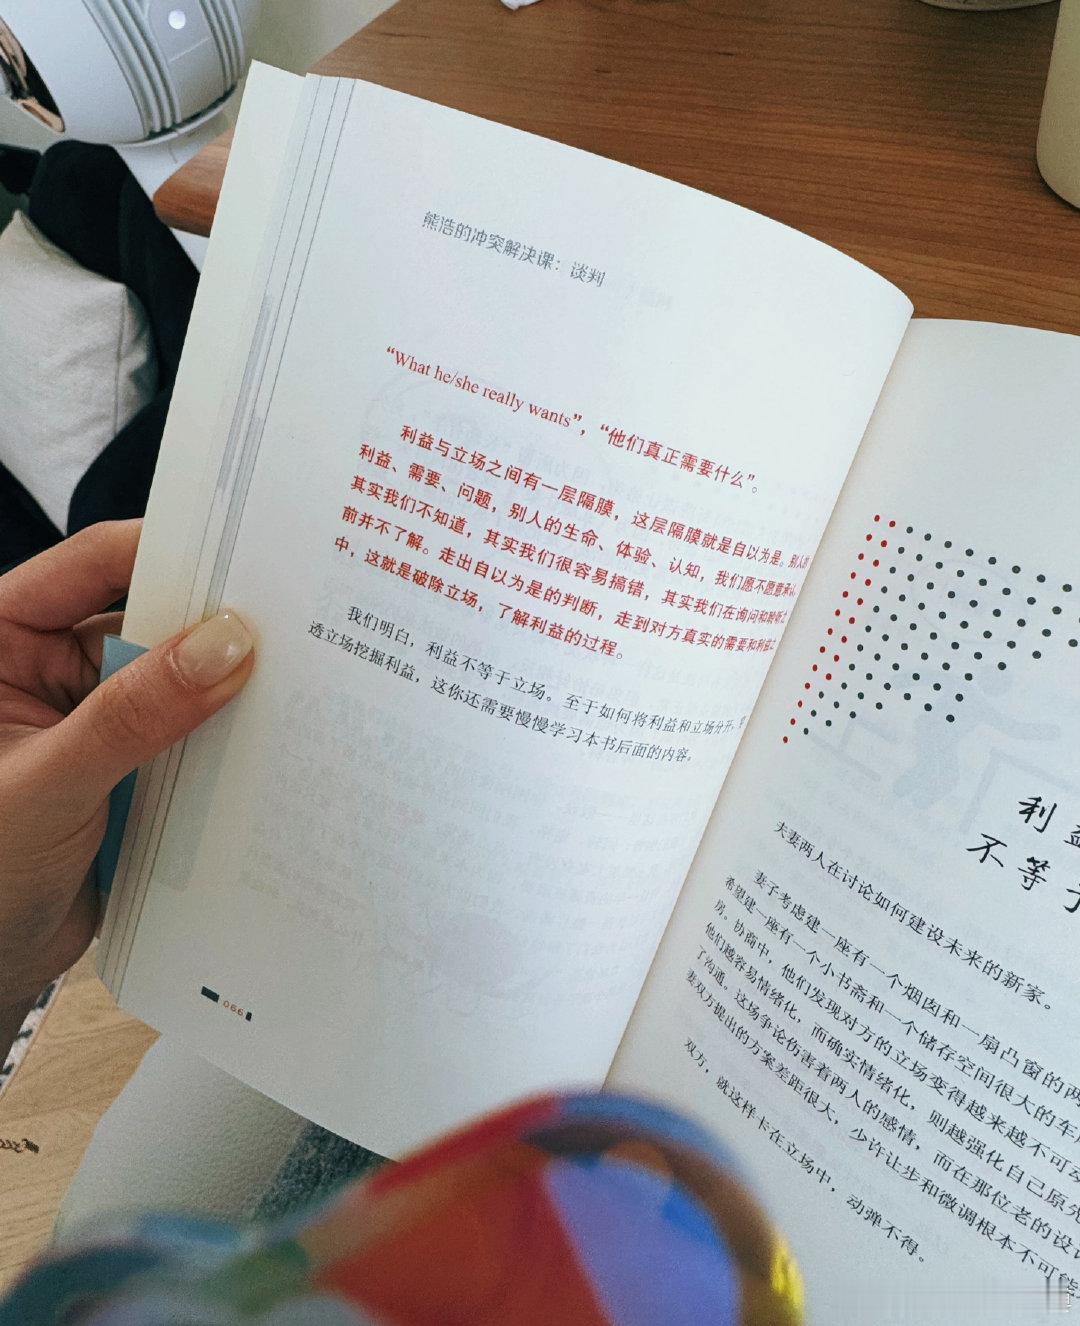 熊浩的冲突解决课：谈判
“What he/she really wants”，“他们真正需要什么”。
利益与立场之间有一层隔膜，这层隔膜就是自以为是。别人的
利益、需要、问题，别人的生命、体验、认知，我们愿不愿意承认，
其实我们不知道，其实我们很容易搞错，其实我们在询问和聆听之
前并不了解。走出自以为是的判断，走到对方真实的需要和利益之
中，这就是破除立场，了解利益的过程。
我们明白，利益不等于立场。至于如何将利益和立场分开，
透立场挖掘利益，这你还需要慢慢学习本书后面的内容。
066
利益
不等于
夫妻两人在讨论如何建设未来的新家。
妻子考虑建一座有一个烟囱和一扇凸窗的两
希望建一座有一个小书斋和一个储存空间很大的车
房。协商中，他们发现对方的立场变得越来越不可动
他们越容易情绪化，而确实情绪化，则越强化自己原先
了沟通。这场争论伤害着两人的感情，而在那位老的设计
妻双方提出的方案差距很大，少许让步和微调根本不可能
双方，就这样卡在立场中，动弹不得。